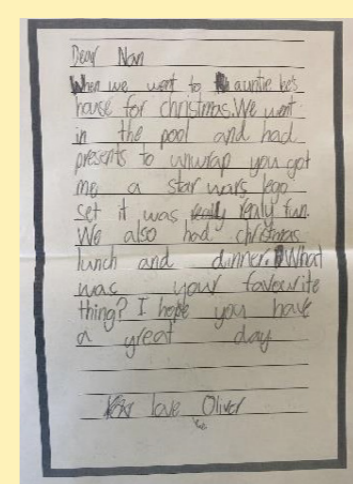 Dear Nan
When we went to auntie be's
house for christmas. We went
in the pool and had
presents to unwrap you got
me a star wars lego
set it was really fun.
We also had christmas
lunch and dinner. What
was your favourite
thing? I hope you have
a great day
love Oliver